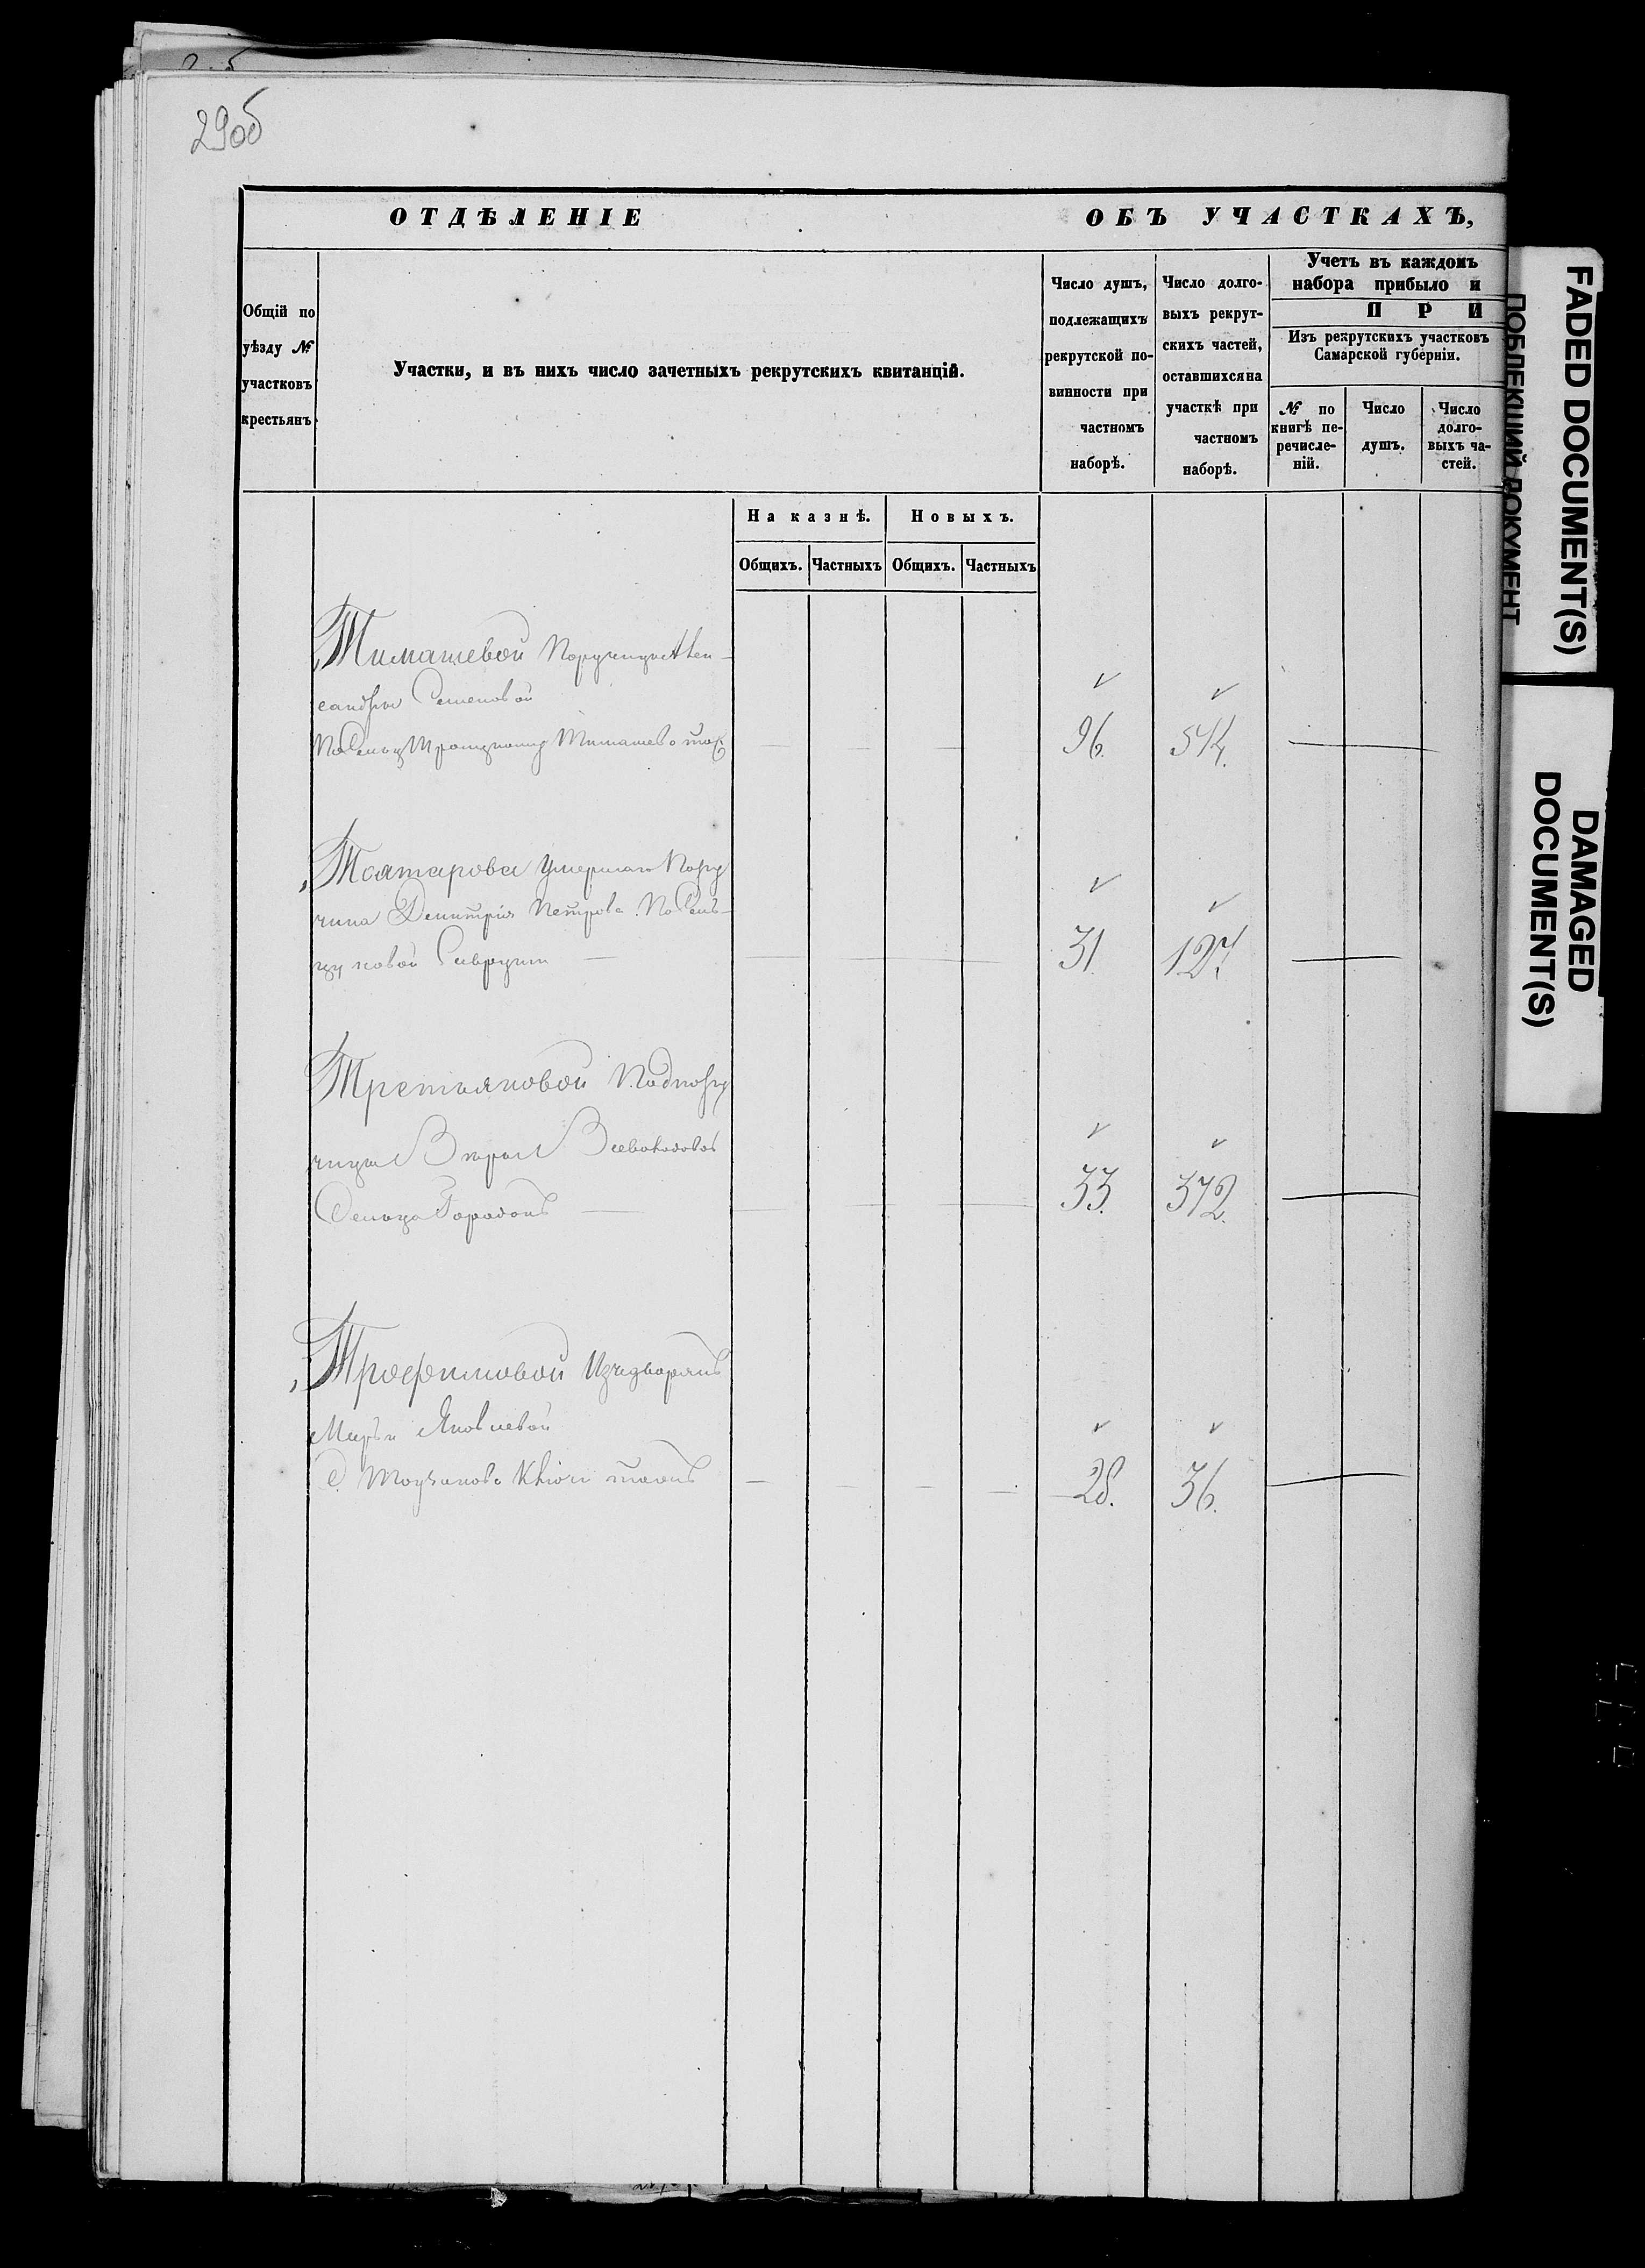 29об
ОТДѢЛЕНІЕ ОБЪ УЧАСТКАХЪ,
Общій по уѣзду № участковъ крестьянъ
Участки, и въ нихъ число зачетныхъ рекрутскихъ квитанцій.
Число душъ,
подлежащихъ
рекрутской по-
винности при
частномъ
наборѣ.
Число долго-
выхъ рекрут-
скихъ частей,
оставшихся на
участкѣ при
частномъ
наборѣ.
Учетъ въ каждомъ
набора прибыло и
П Р И
Изъ рекрутскихъ участковъ
Самарской губерніи.
№ по
книгѣ пе-
речисле-
ній.
Число
душъ.
Число
долго-
выхъ ча-
стей.
На казнѣ. Новыхъ.
Общихъ. Частныхъ Общихъ. Частныхъ
Тимашевой Поручицы Алек-
сандры Семеновой
Тимашево 96. 544.
Татарова умершаго Пору
чика Дмитрія Петрова. По сель-
цу новой 31. 127
Третьяковой Подпору
чицы Вѣры Всеволодовой
Сельца 33. 372.
Трофимовой Изъ дворянъ
Марьи Яковлевой
д. Ключи тожъ 28. 36.
FADED DOCUMENT(S)
ПОБЛЕКШИЙ ДОКУМЕНТ
DAMAGED
DOCUMENT(S)